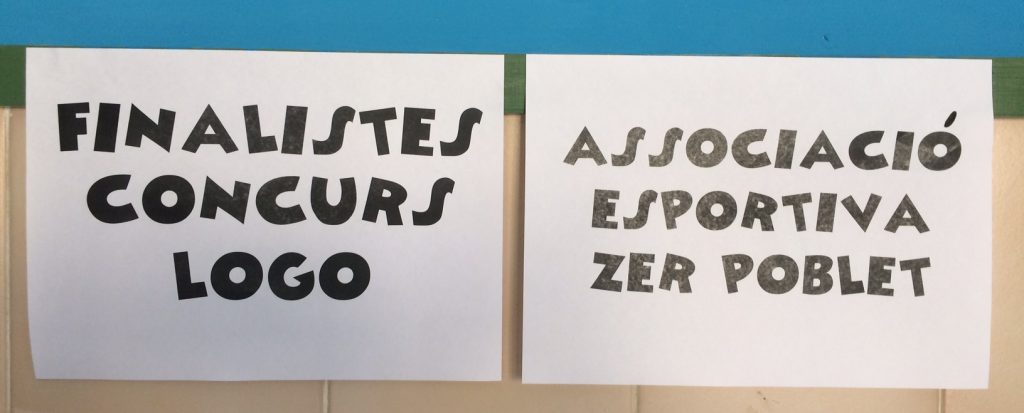 FINALISTES
CONCURS
LOGO
ASSOCIACIÓ
ESPORTIVA
ZER POBLET